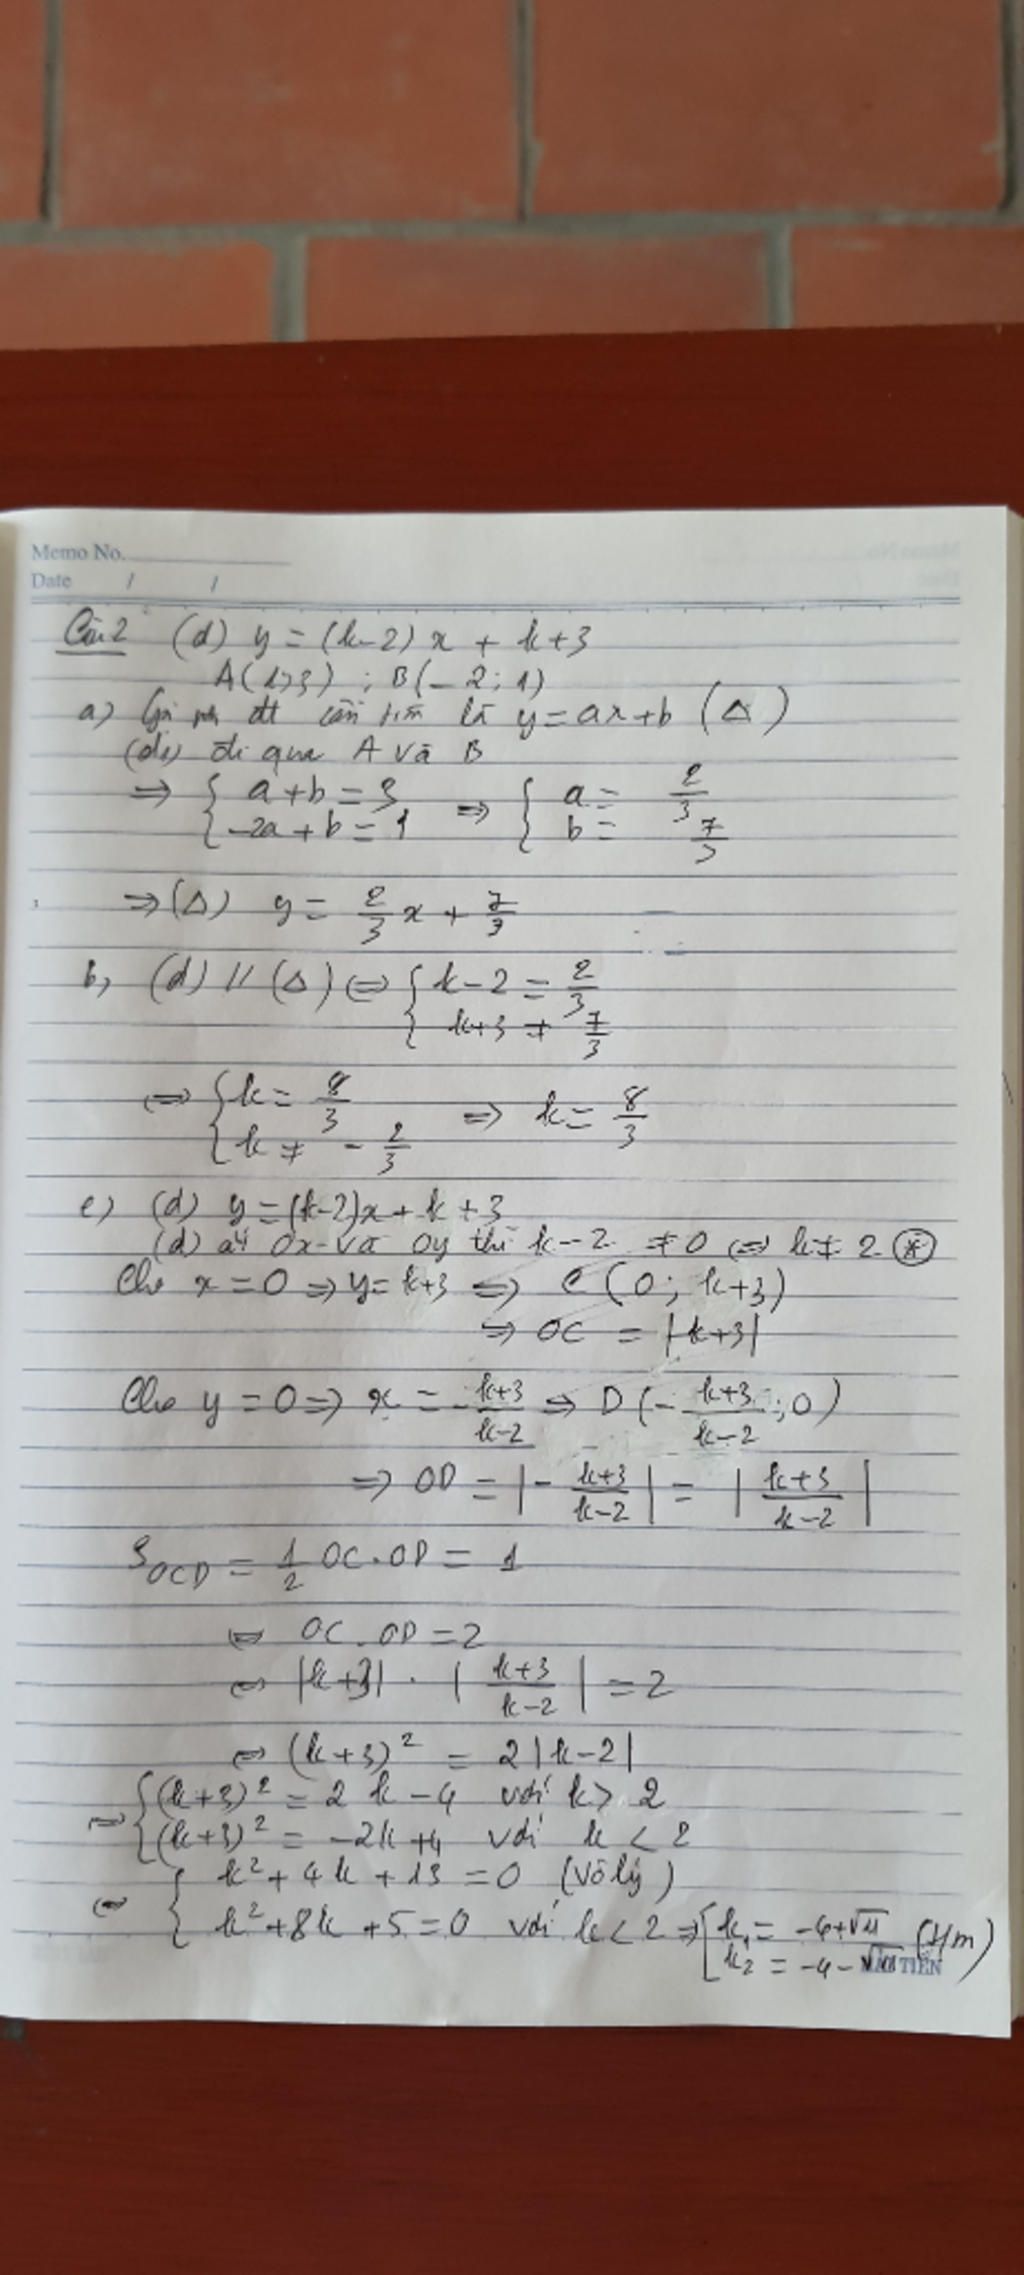 Memo No.
Date / /
Câu 2 (d) y = (k-2) x + k+3
A(1;3) ; B(-2; 1)
a) Gọi pt đt cần tìm là y = ax+b (Δ)
đi qua A và B
⇒ { a+b = 3 ⇒ { a = 2/3
{ -2a + b = 1 { b = 7/3
⇒ (Δ) y = 2/3 x + 7/3
b, (d) // (Δ) ⇔ { k-2 = 2/3
{ k+3 ≠ 7/3
⇔ { k = 8/3 ⇒ k = 8/3
{ k ≠ - 2/3
c) (d) y = (k-2)x + k + 3
(d) Ox và Oy thì k-2 ≠ 0 ⇔ k ≠ 2 (*)
Cho x = 0 ⇒ y = k+3 ⇔ C (0; k+3)
⇒ OC = |k+3|
Cho y = 0 ⇒ x = - k+3/k-2 ⇒ D (- k+3/k-2 ; 0)
⇒ OD = |- k+3/k-2| = |k+3/k-2|
S OCD = 1/2 OC.OD = 1
⇔ OC.OD = 2
⇔ |k+3| . |k+3/k-2| = 2
⇔ (k+3)² = 2|k-2|
⇔ { (k+3)² = 2k - 4 với k > 2
{ (k+3)² = -2k+4 với k < 2
⇔ { k² + 4k + 13 = 0 (vô lý)
{ k² + 8k + 5 = 0 với k < 2 ⇒ [ k₁ = -4+√11 (t/m)
[ k₂ = -4-√11
TIẾN